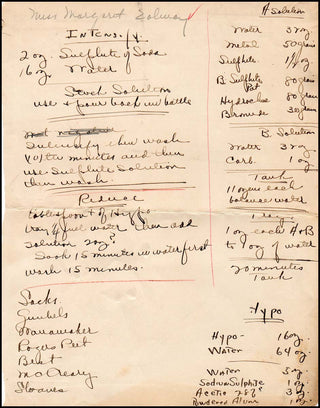 Miss Margaret
Intensify
2 oz. Sulphite of Soda
16 oz. Water
Stock Solution
use & pour back in bottle
Intensify then wash
10 minutes and then
use Sulphite Solution
then wash.
Reduce
tablespoon of Hypo
tray full water then add
solution
Soak 15 minutes in water first
wash 15 minutes.
Sacks.
Gimbels
Wanamaker
Rogers Peet
Best
McCreary
Sloanes
A Solution
Water 32 oz
Metol 50 grain
Sulphite
B. Sulphite
80 grain
Hydrochin 80 grain
Bromide 30 grain
B. Solution
Water 32 oz
Carb. 1 oz
Tank
11 ozs each
balance water
Tray
1 oz each A & B
to 1 oz of water
20 minutes
Tank
Hypo
Hypo - 16 oz.
Water 64 oz.
Water 5 oz
Sodium Sulphite 1 oz
Acetic 28% 3 oz
Powdered Alum 1 oz